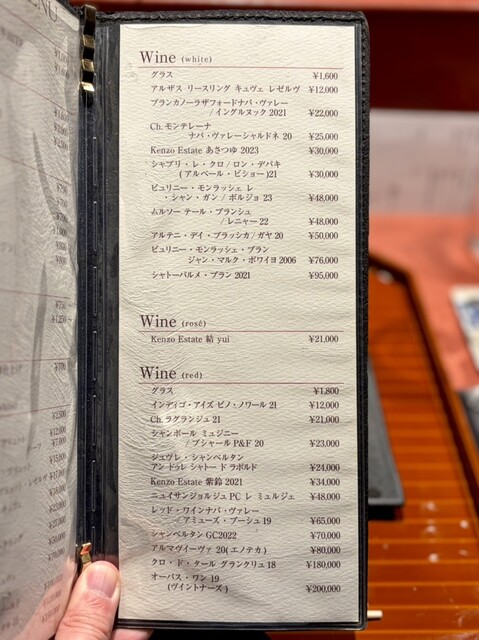 Wine (white)
グラス ¥1,600
アルザス リースリング キュヴェ レゼルヴ ¥12,000
ブランカノーラザフォードナパ・ヴァレー
/ イングルヌック 2021 ¥22,000
Ch. モンテレーナ
ナパ・ヴァレーシャルドネ 20 ¥25,000
Kenzo Estate あさつゆ 2023 ¥30,000
シャブリ・レ・クロ / ロン・デパキ
( アルベール・ビショー )21 ¥30,000
ピュリニー・モンラッシェ レ
・シャン・ガン / ボルジョ 23 ¥48,000
ムルソー テール・ブランシュ
/ レニャー 22 ¥48,000
アルテニ・デイ・ブラッシカ / ガヤ 20 ¥50,000
ピュリニー・モンラッシェ・ブラン
ジャン・マルク・ボワイヨ 2006 ¥76,000
シャトーパルメ・ブラン 2021 ¥95,000
Wine (rosé)
Kenzo Estate 結 yui ¥21,000
Wine (red)
グラス ¥1,800
インディゴ・アイズ ピノ・ノワール 21 ¥12,000
Ch. ラグランジュ 21 ¥21,000
シャンボール ミュジニー
/ ブシャール P&F 20 ¥23,000
ジュヴレ・シャンベルタン
アンドゥレ シャトー ド ラボルド ¥24,000
Kenzo Estate 紫鈴 2021 ¥34,000
ニュイサンジョルジュ PC レ ミュルジェ ¥48,000
レッド・ワインナパ・ヴァレー
/ アミューズ・ブーシュ 19 ¥65,000
シャンベルタン GC2022 ¥70,000
アルマヴィーヴァ 20( エノテカ ) ¥80,000
クロ・ド・タール グランクリュ 18 ¥180,000
オーパス・ワン 19
(ヴイントナーズ) ¥200,000